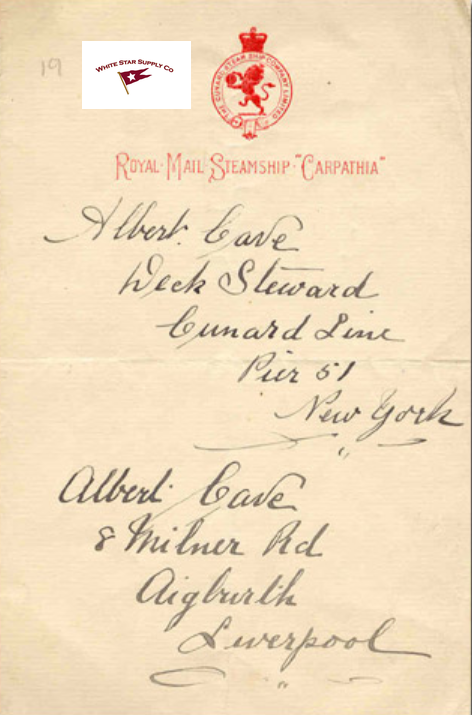 19
WHITE STAR SUPPLY CO
THE CUNARD STEAM SHIP COMPANY LIMITED
ROYAL·MAIL·STEAMSHIP·"CARPATHIA"
Albert Cave
Deck Steward
Cunard Line
Pier 51
New York
"
Albert Cave
8 Milner Rd
Aigburth
Liverpool
"